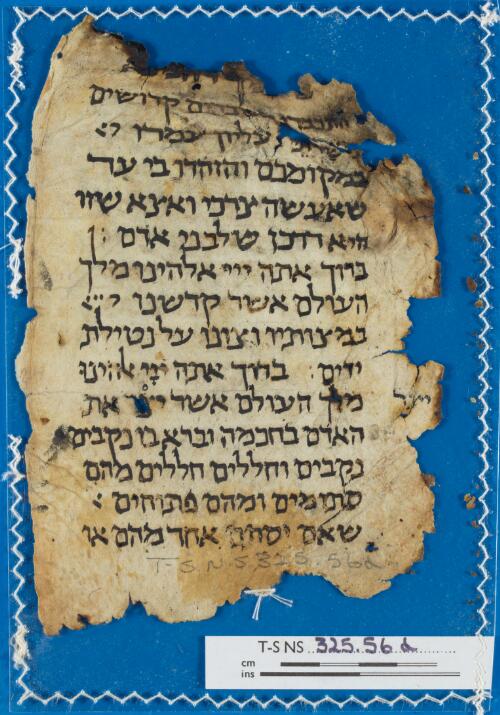 קדושים
עליון עמדו
במקומכם והזהרו בי עד
שאעשה צרכי ואצא שזו
היא דרכן שלבני אדם
ברוך אתה ייי אלהינו מלך
העולם אשר קדשנו
במצותיו וצונו על נטילת
ידים ברוך אתה ייי אלהינו
מלך העולם אשר יצר את
האדם בחכמה וברא בו נקבים
נקבים וחללים חללים מהם
סתומים ומהם פתוחים
שאם יסתם אחד מהם או
T-S NS 325.56d
T-S NS 325.56d
cm
ins